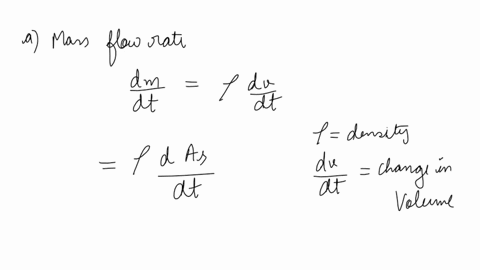 a) Mass flow rate
dm/dt = ρ dv/dt
= ρ d As/dt
ρ = density
dv/dt = change in
Volume